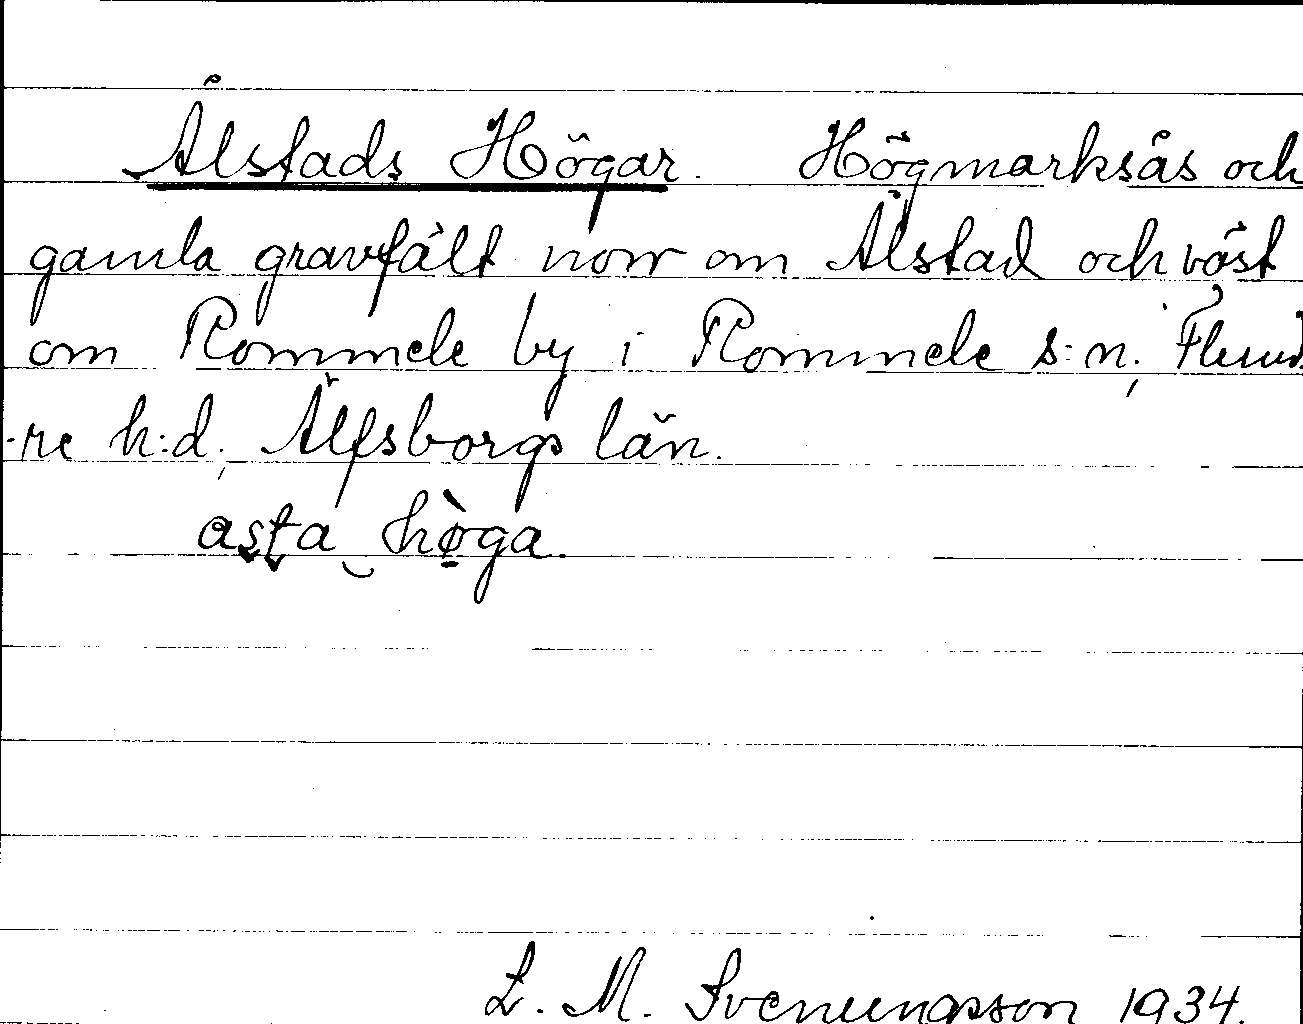 Ålstads Högar. Högmarksås och
gamla gravfält norr om Ålstad och väst
om Rommele by i Rommele s:n; Flund
-re h:d; Älfsborgs län.
asta höga.
L. M. Svenungsson 1934.